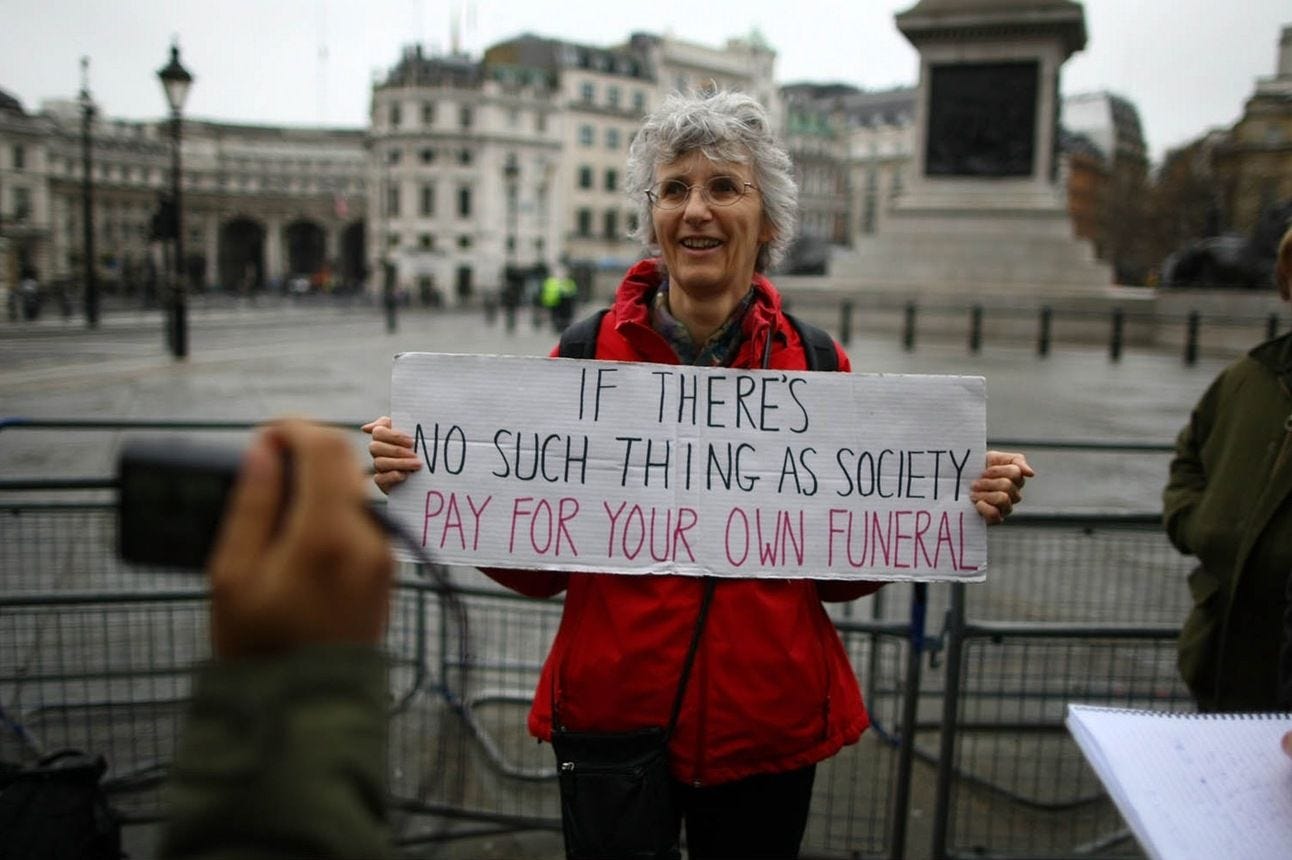 IF THERE'S
NO SUCH THING AS SOCIETY
PAY FOR YOUR OWN FUNERAL